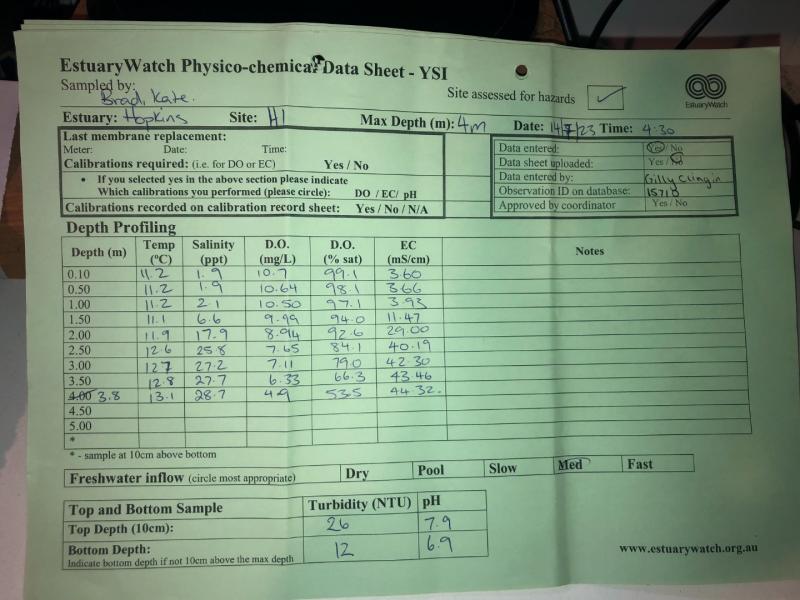 EstuaryWatch Physico-chemical Data Sheet - YSI
Sampled by: Brad, Kate.
Site assessed for hazards ✓
EstuaryWatch
Estuary: Hopkins Site: H1 Max Depth (m): 4m Date: 14/7/23 Time: 4:30
Last membrane replacement:
Meter: Date: Time:
Calibrations required: (i.e. for DO or EC) Yes / No
• If you selected yes in the above section please indicate
Which calibrations you performed (please circle): DO / EC / pH
Calibrations recorded on calibration record sheet: Yes / No / N/A
Data entered: Yes / No
Data sheet uploaded: Yes / No
Data entered by: Gilly Clingin
Observation ID on database: 15718
Approved by coordinator Yes / No
Depth Profiling
Depth (m) Temp (ºC) Salinity (ppt) D.O. (mg/L) D.O. (% sat) EC (mS/cm) Notes
0.10 11.2 1.9 10.7 99.1 3.60
0.50 11.2 1.9 10.64 98.1 3.66
1.00 11.2 2.1 10.50 97.1 3.93
1.50 11.1 6.6 9.99 94.0 11.47
2.00 11.9 17.9 8.94 92.6 29.00
2.50 12.6 25.8 7.65 84.1 40.19
3.00 12.7 27.2 7.11 79.0 42.30
3.50 12.8 27.7 6.33 66.3 43.46
4.00 3.8 13.1 28.7 4.9 53.5 44.32.
4.50
5.00
*
* - sample at 10cm above bottom
Freshwater inflow (circle most appropriate) Dry Pool Slow Med Fast
Top and Bottom Sample Turbidity (NTU) pH
Top Depth (10cm): 26 7.9
Bottom Depth: 12 6.9
Indicate bottom depth if not 10cm above the max depth
www.estuarywatch.org.au